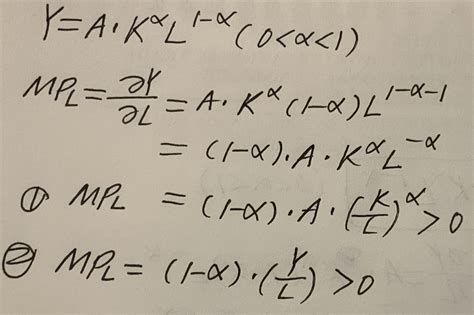 Y=A·K^α L^(1-α) (0<α<1)
MPL=∂Y/∂L=A·K^α(1-α)L^(1-α-1)
=(1-α)·A·K^α L^(-α)
① MPL =(1-α)·A·(K/L)^α>0
② MPL=(1-α)·(Y/L)>0